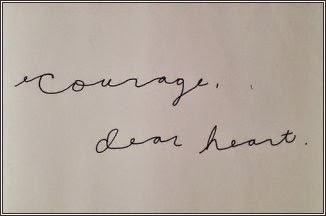 courage.
dear heart.